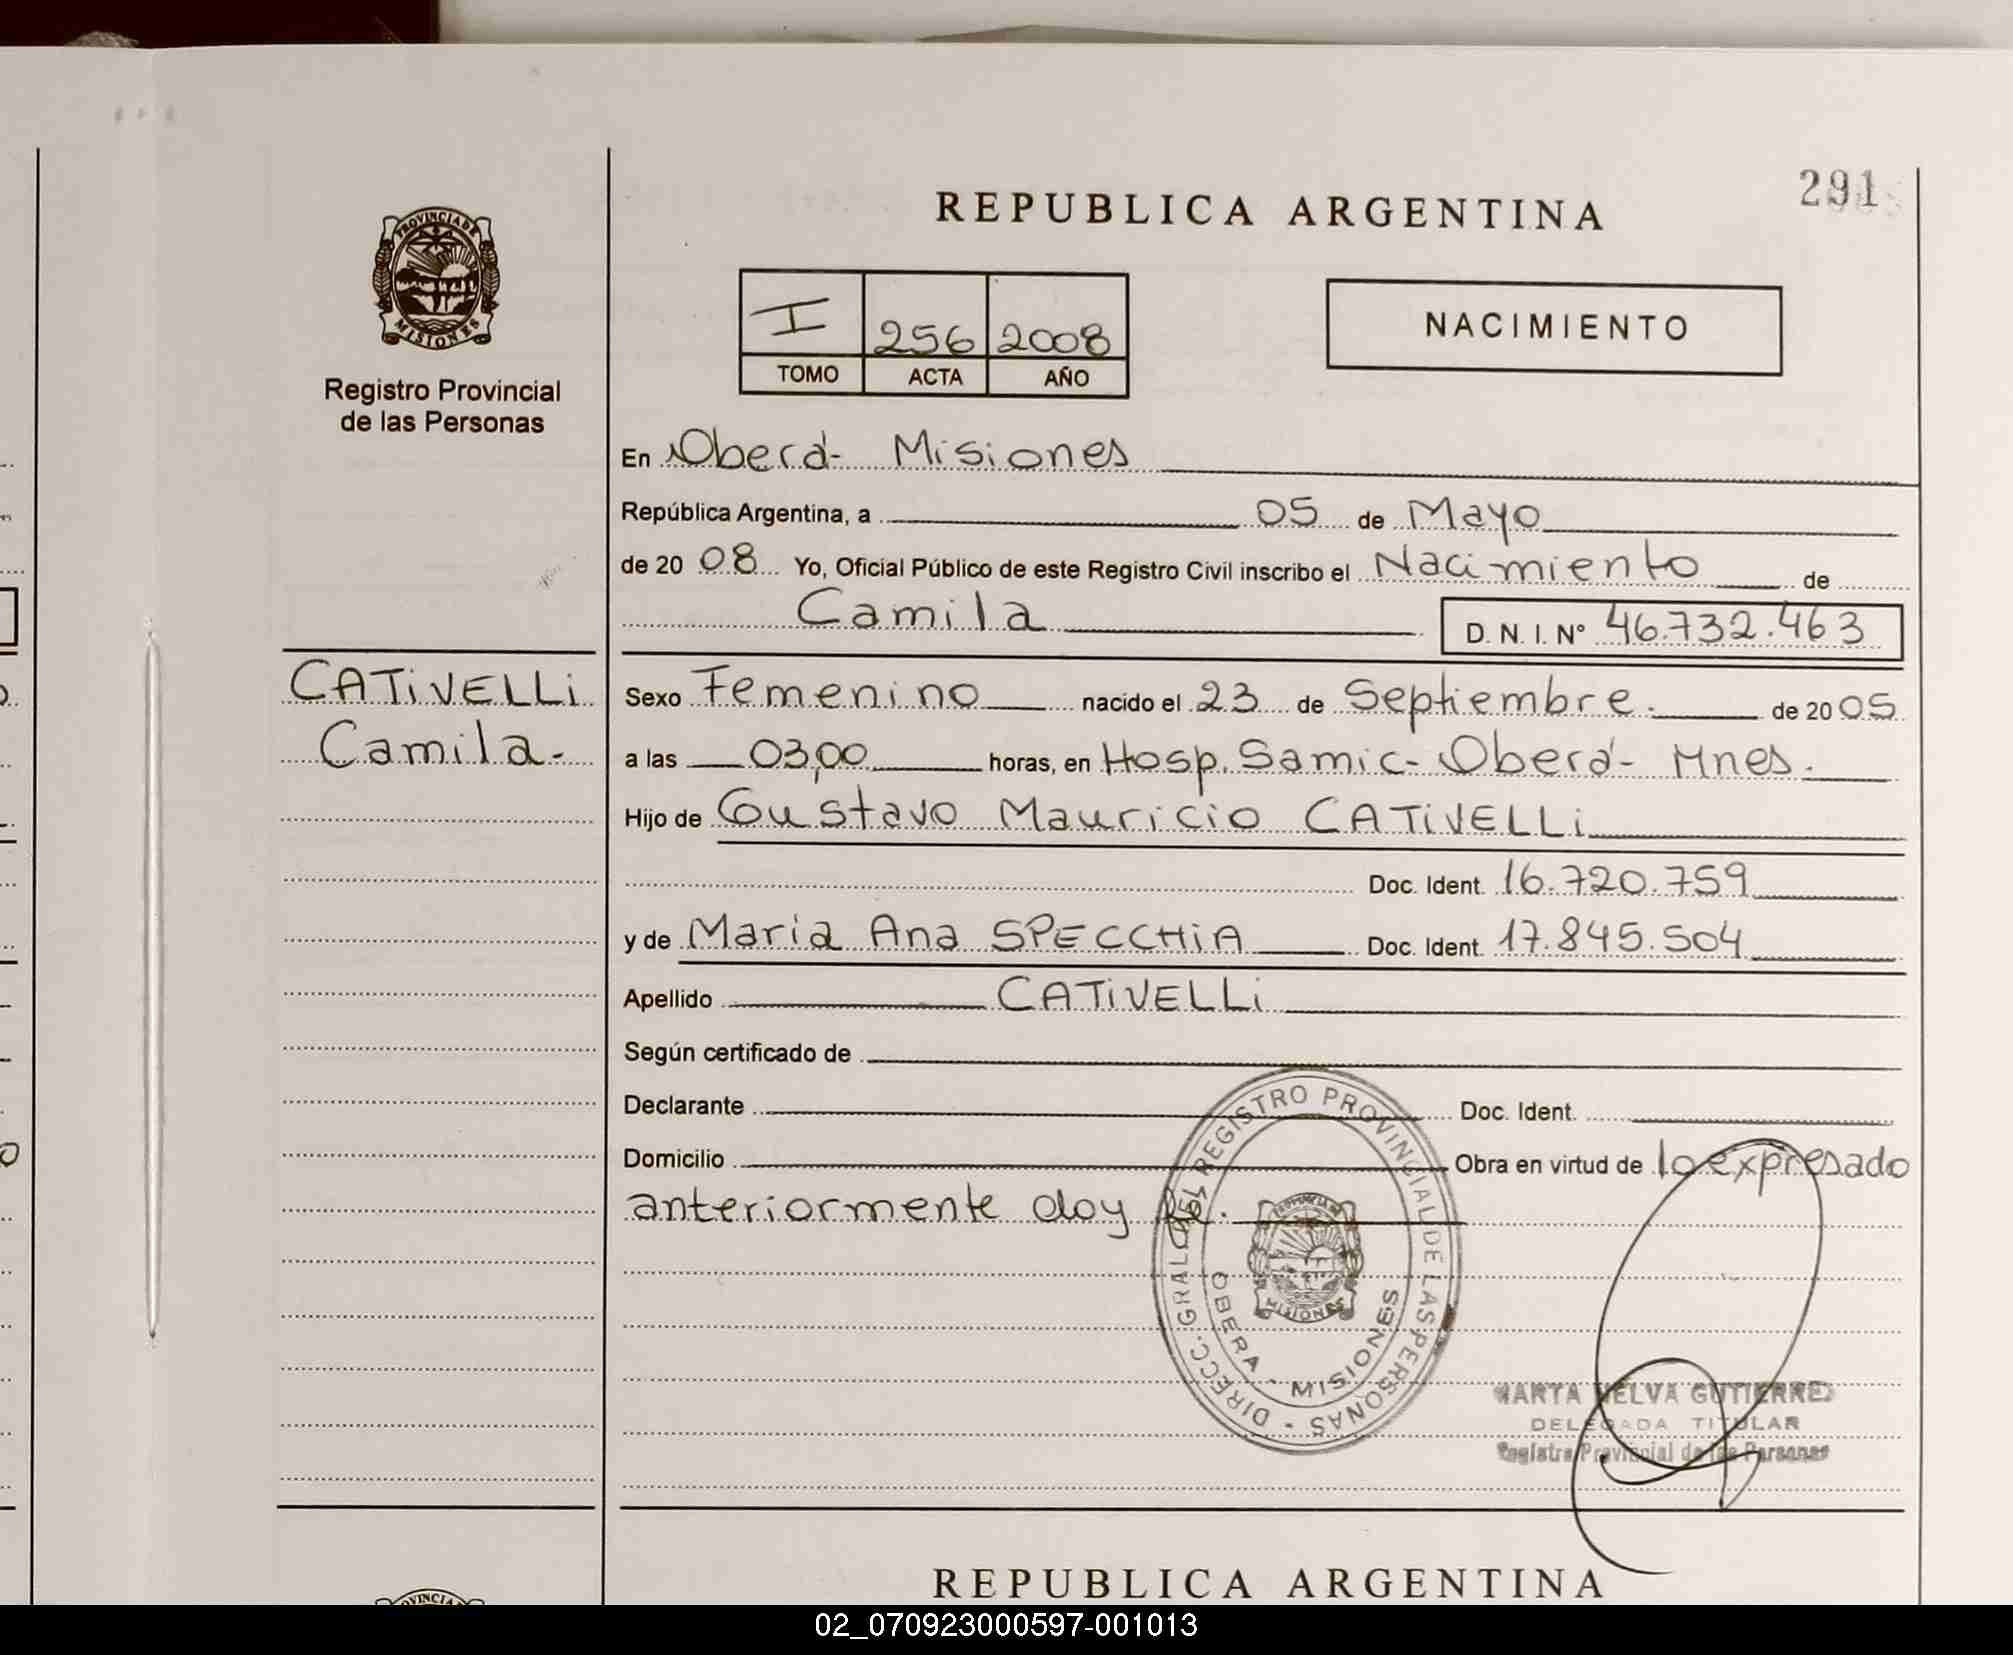 291
REPUBLICA ARGENTINA
PROVINCIA DE
MISIONES
Registro Provincial
de las Personas
I 256 2008
TOMO ACTA AÑO
NACIMIENTO
En Oberá- Misiones
República Argentina, a 05 de Mayo
de 20 08 Yo, Oficial Público de este Registro Civil inscribo el Nacimiento de
Camila D. N. I. Nº 46.732.463
CATiVELLi
Camila-
Sexo Femenino nacido el 23 de Septiembre. de 20 05
a las 03,00 horas, en Hosp. Samic- Oberá- Mnes.
Hijo de Gustavo Mauricio CATiVELLi
Doc. Ident. 16.720.759
y de Maria Ana SPECCHiA Doc. Ident. 17.845.504
Apellido CATiVELLi
Según certificado de
Declarante Doc. Ident.
Domicilio Obra en virtud de lo expresado
anteriormente doy fe.
DIRECC. GRAL. DEL REGISTRO PROVINCIAL DE LAS PERSONAS -
MISIONES
OBERA - MISIONES
MARTA NELVA GUTIERREZ
DELEGADA TITULAR
Registro Provincial de las Personas
REPUBLICA ARGENTINA
02_070923000597-001013